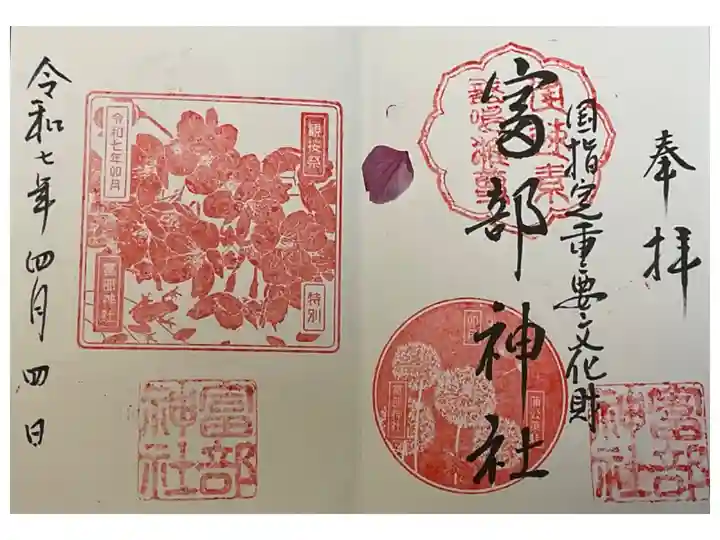 奉拝
国指定重要文化財
富部神社
富部神社
卯月
富部神社
観桜祭
特別
令和七年卯月
富部神社
富部神社
令和七年四月四日